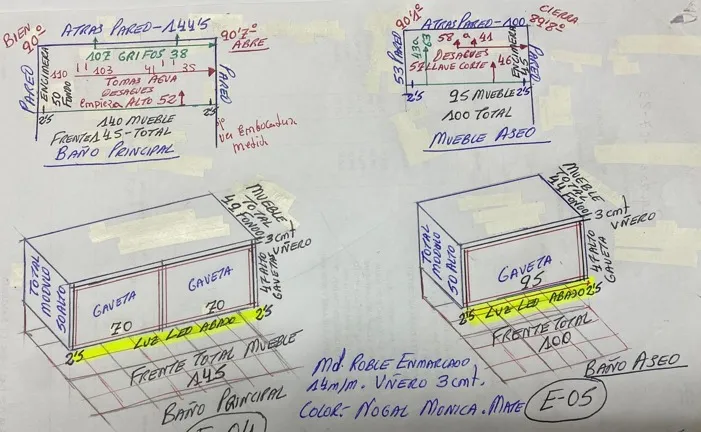 BIEN
90º
ATRAS PARED-144'5
90'7º
ABRE
107 GRIFOS 38
110
103
41
35
TOMAS AGUA
DESAGUES
EMPIEZA ALTO 52
PARED
ENCIMERA
50 FONDO
PARED
2'5
2'5
140 MUEBLE
FRENTE 145-TOTAL
BAÑO PRINCIPAL
VER EMBOCADURA
MEDIDA
90'1º
ATRAS PARED-100
CIERRA
89'8º
53 PARED
63
58
41
DESAGUES
57 LLAVE CORTE
46
ENCIMERA
45
PARED
2'5
2'5
95 MUEBLE
100 TOTAL
MUEBLE ASEO
MUEBLE
TOTAL
49 FONDO
3 cmt
UÑERO
TOTAL
MODULO
50 ALTO
GAVETA
70
GAVETA
70
47 ALTO
GAVETAS
2'5
LUZ LED ABAJO
2'5
FRENTE TOTAL MUEBLE
145
BAÑO PRINCIPAL
E-04
MUEBLE
TOTAL
44 FONDO
3 cmt
UÑERO
TOTAL
MODULO
50 ALTO
GAVETA
95
47 ALTO
GAVETA
2'5
LUZ LED ABAJO
2'5
FRENTE TOTAL
100
BAÑO ASEO
Md. ROBLE ENMARCADO
14m/m. UÑERO 3 cmt.
COLOR- NOGAL MONICA. MATE
E-05